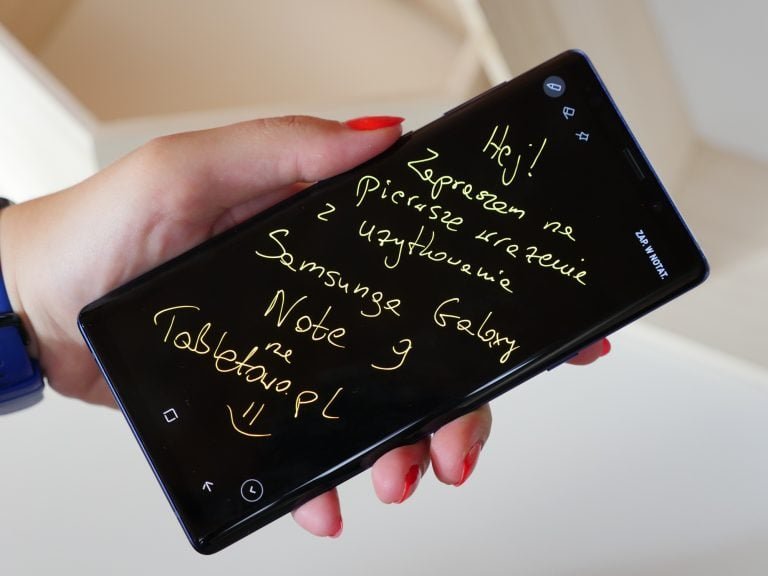 ZAP. W NOTAT.
Hej!
Zapraszam na
pierwsze wrażenie
z użytkowania
Samsunga Galaxy
Note 9
na
Tabletowo.pl
=)